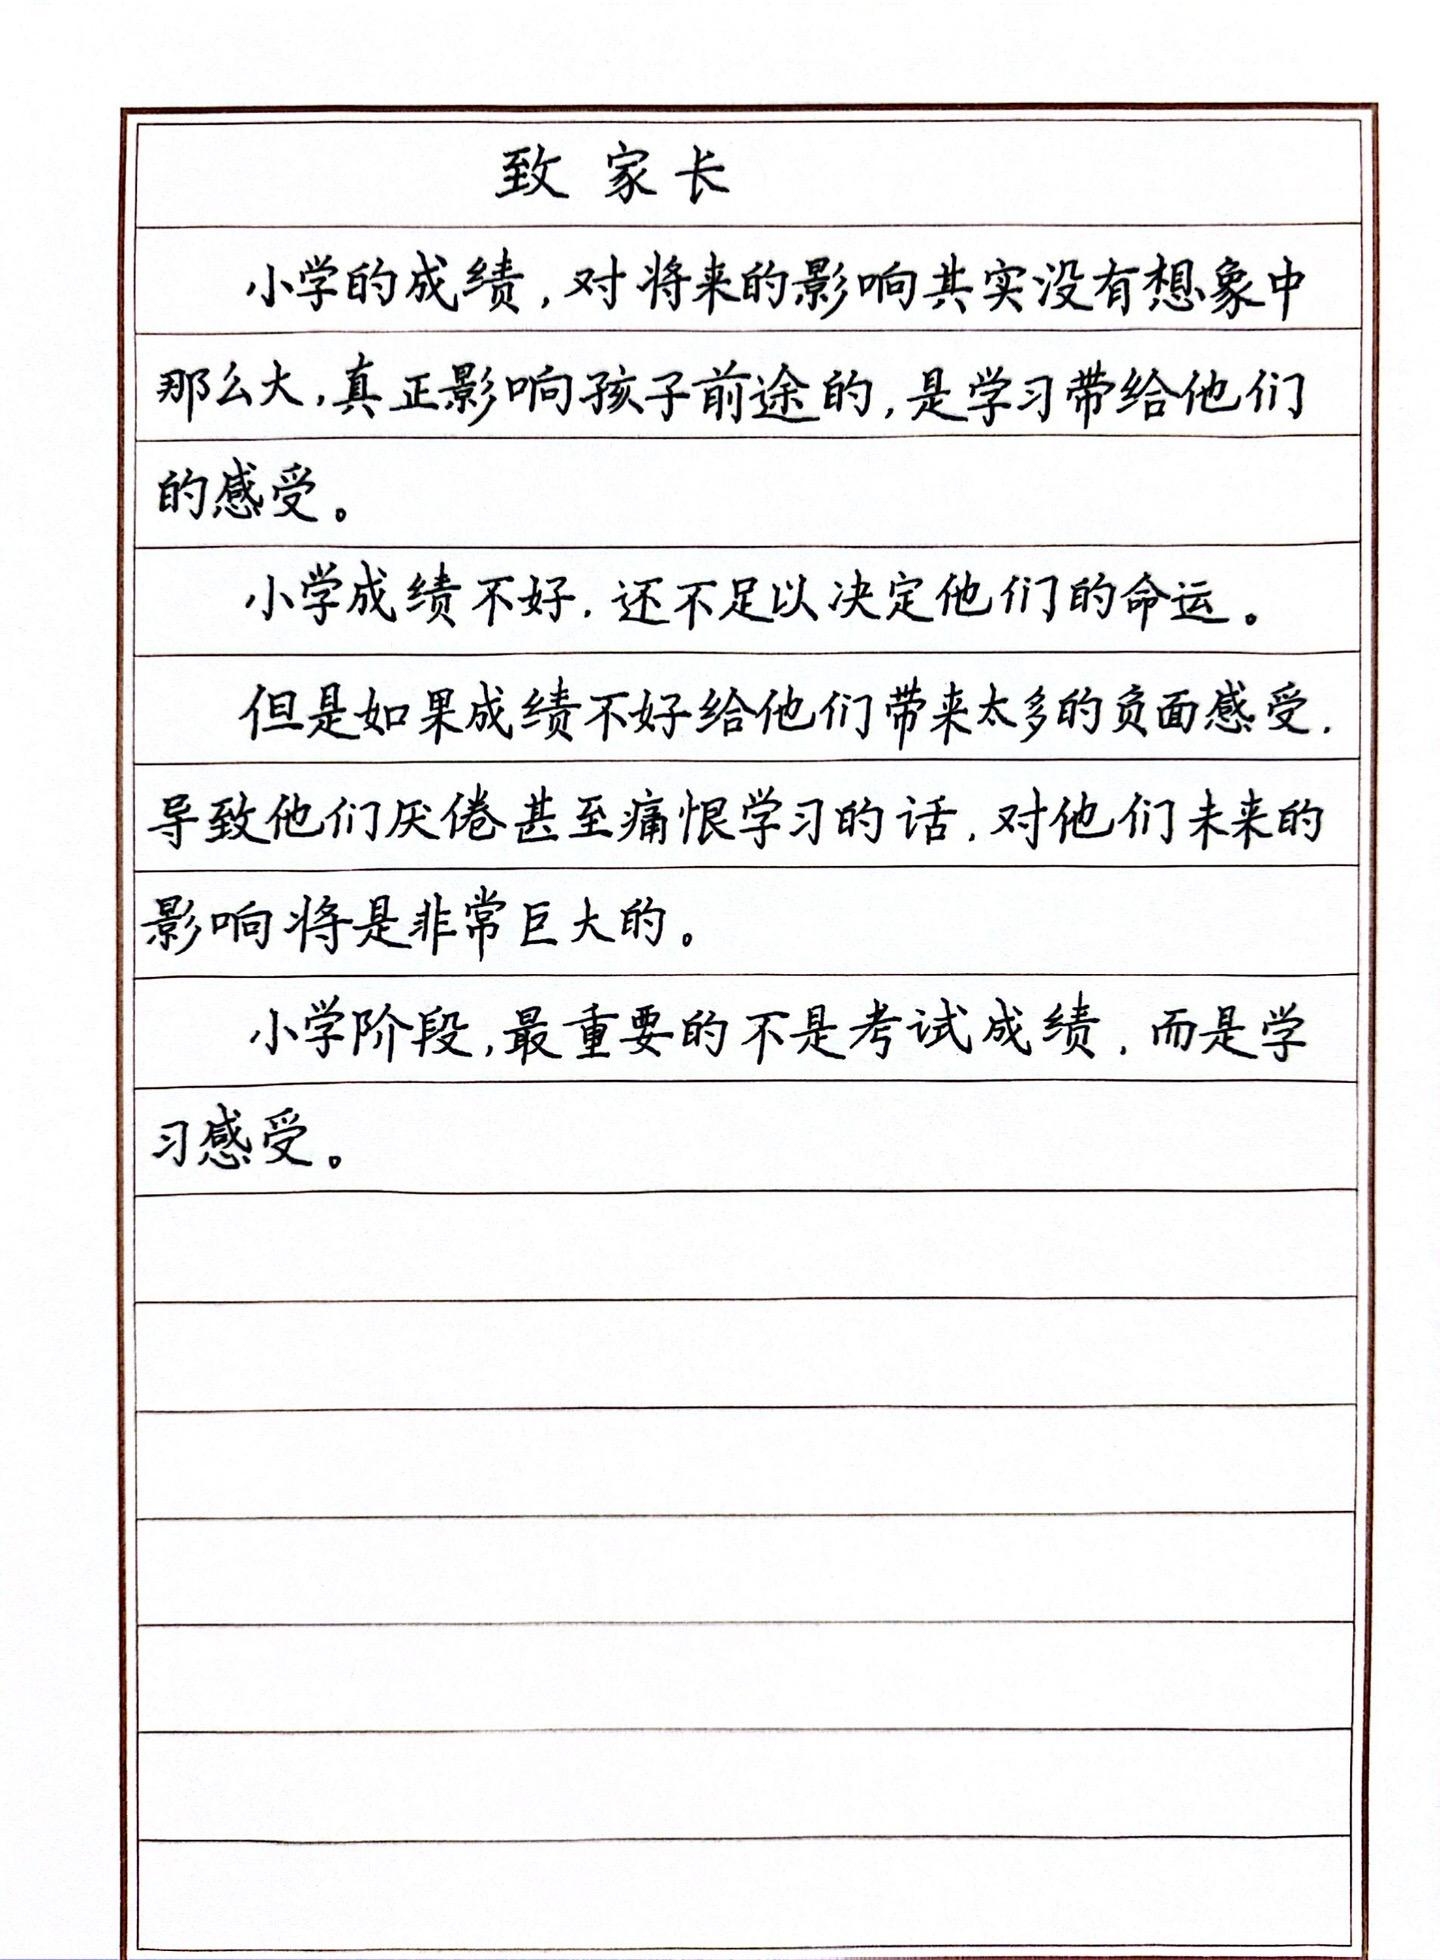 致家长
小学的成绩,对将来的影响其实没有想象中
那么大,真正影响孩子前途的,是学习带给他们
的感受。
小学成绩不好,还不足以决定他们的命运。
但是如果成绩不好给他们带来太多的负面感受,
导致他们厌倦甚至痛恨学习的话,对他们未来的
影响将是非常巨大的。
小学阶段,最重要的不是考试成绩,而是学
习感受。